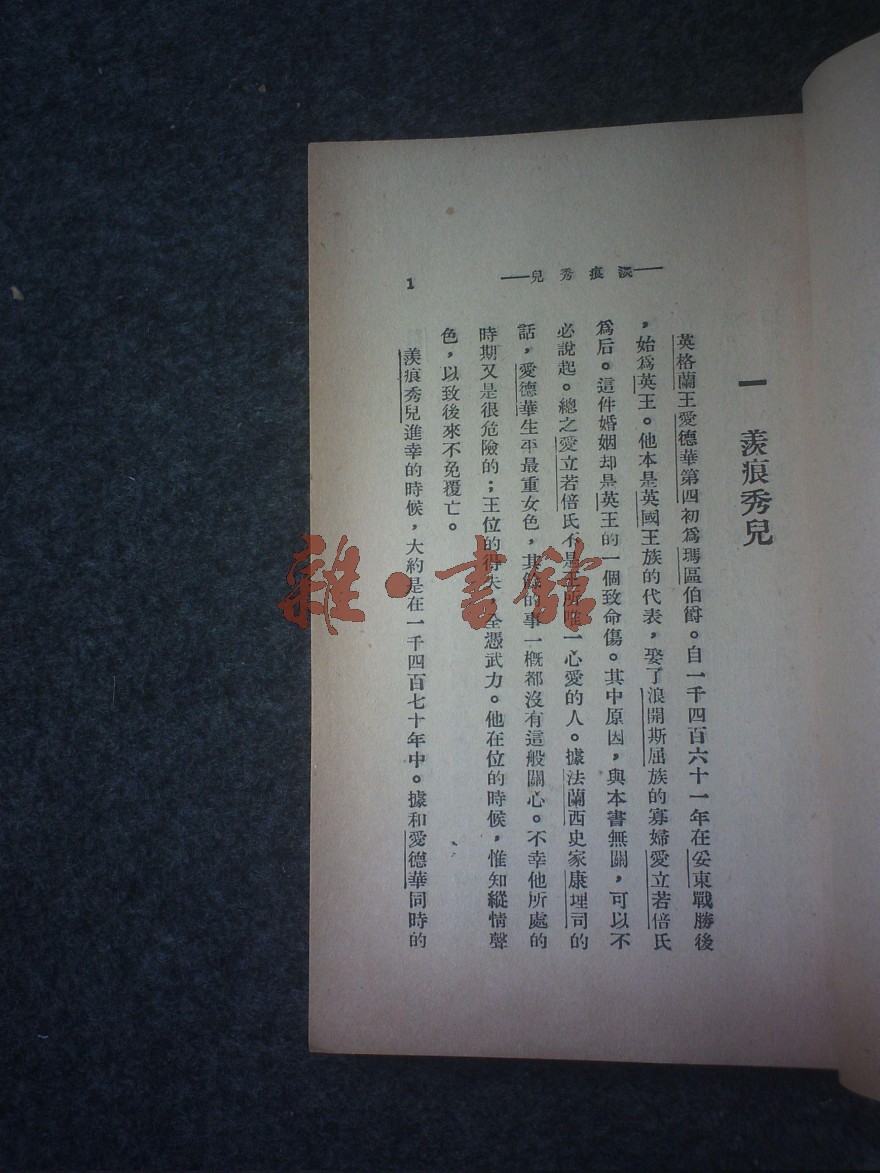 一 羨痕秀兒
英格蘭王愛德華第四初爲瑪區伯爵。自一千四百六十一年在妥東戰勝後
，始爲英王。他本是英國王族的代表，娶了浪開斯屈族的寡婦愛立若倍氏
爲后。這件婚姻却是英王的一個致命傷。其中原因，與本書無關，可以不
必說起。總之愛立若倍氏不是王所唯一心愛的人。據法蘭西史家康埋司的
話，愛德華生平最重女色，其餘的事一概都沒有這般關心。不幸他所處的
時期又是很危險的；王位的得失，全憑武力。他在位的時候，惟知縱情聲
色，以致後來不免覆亡。
羨痕秀兒進幸的時候，大約是在一千四百七十年中。據和愛德華同時的
——羨痕秀兒——
1
雜·書館